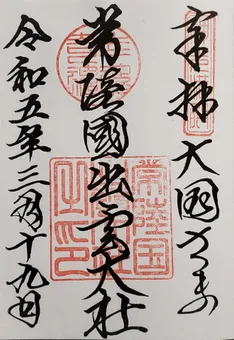 奉拝 大国さま
常陸國出雲大社
令和五年三月十九日
常陸国